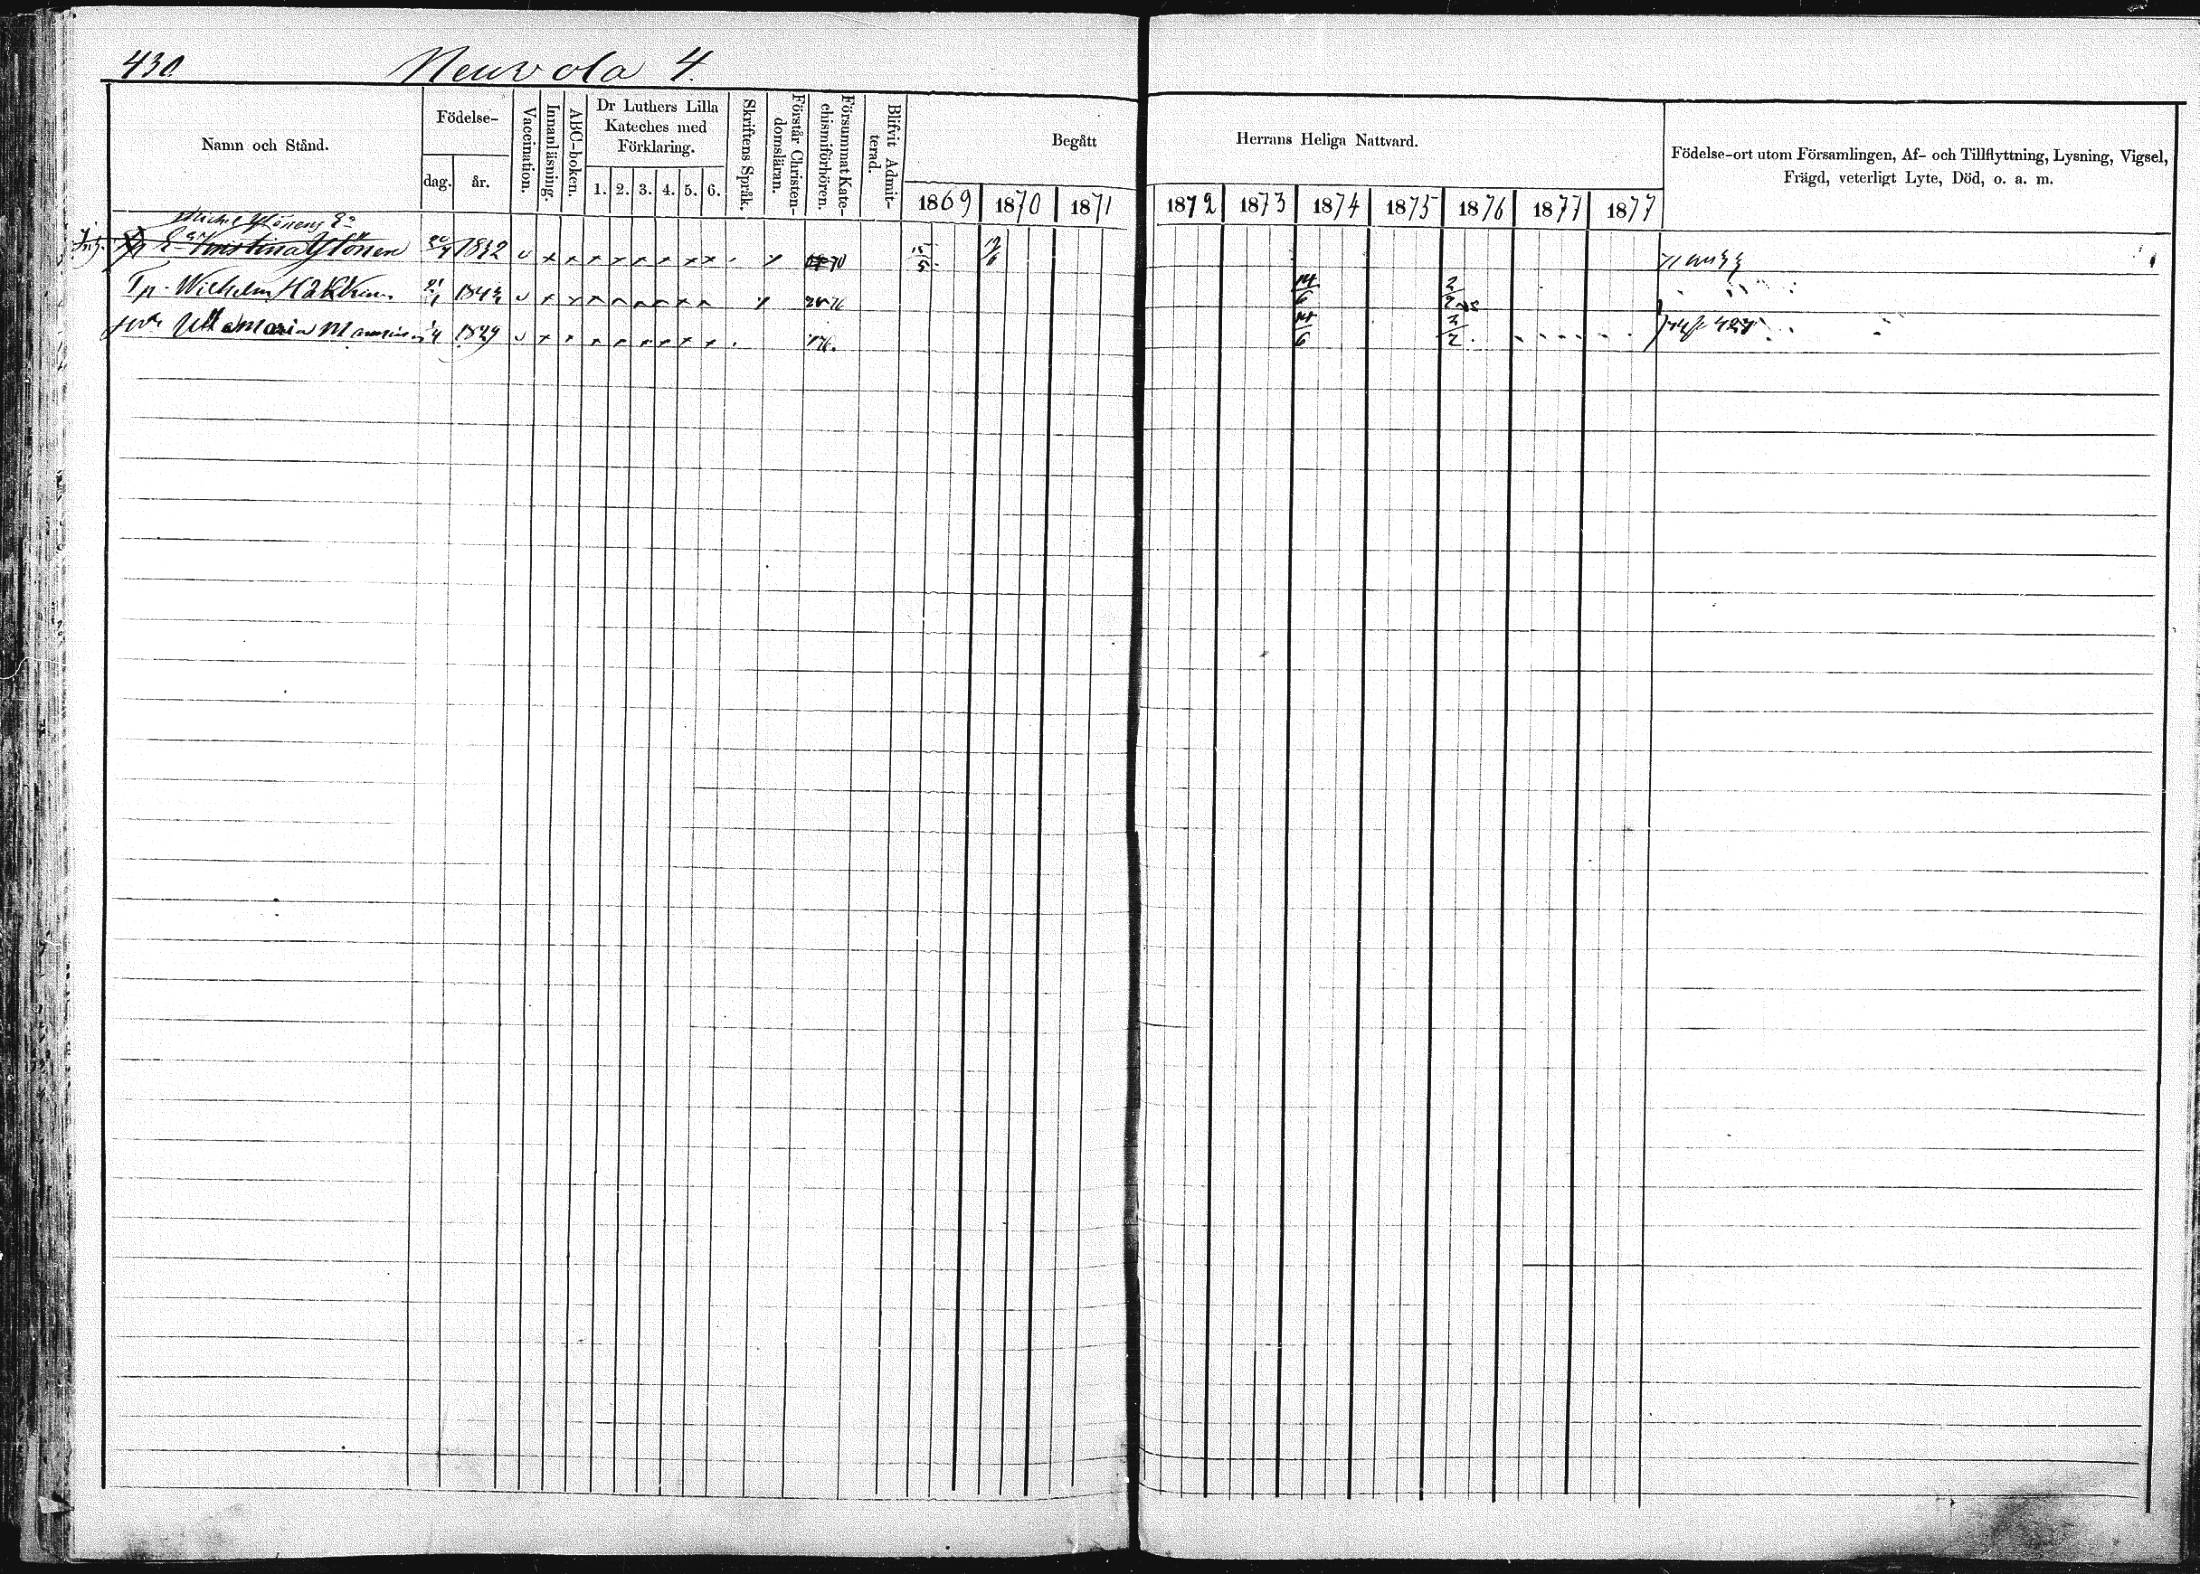 430.
Neuvola 4.
Namn och Stånd.
Födelse-
dag.
år.
Vaccination.
Innanläsning.
ABC-boken.
Dr Luthers Lilla Kateches med Förklaring.
1. 2. 3. 4. 5. 6.
Skriftens Språk.
Förstår Christendomsläran.
Försummat Katechismiförhören.
Blifvit Admitterad.
Begått Herrans Heliga Nattvard.
1869 1870 1871 1872 1873 1874 1875 1876 1877 1877
Födelse-ort utom Församlingen, Af- och Tillflyttning, Lysning, Vigsel,
Frägd, veterligt Lyte, Död, o. a. m.
Michel Ylönens
Kristina Ylönen 1832 v x x x x x x x x 15/5 70
Tp. Wilhelm Häkkinen 21/1 v x x x x 14/6 2/2
Ulla Maria v x x x x 76. 14/6 2/2